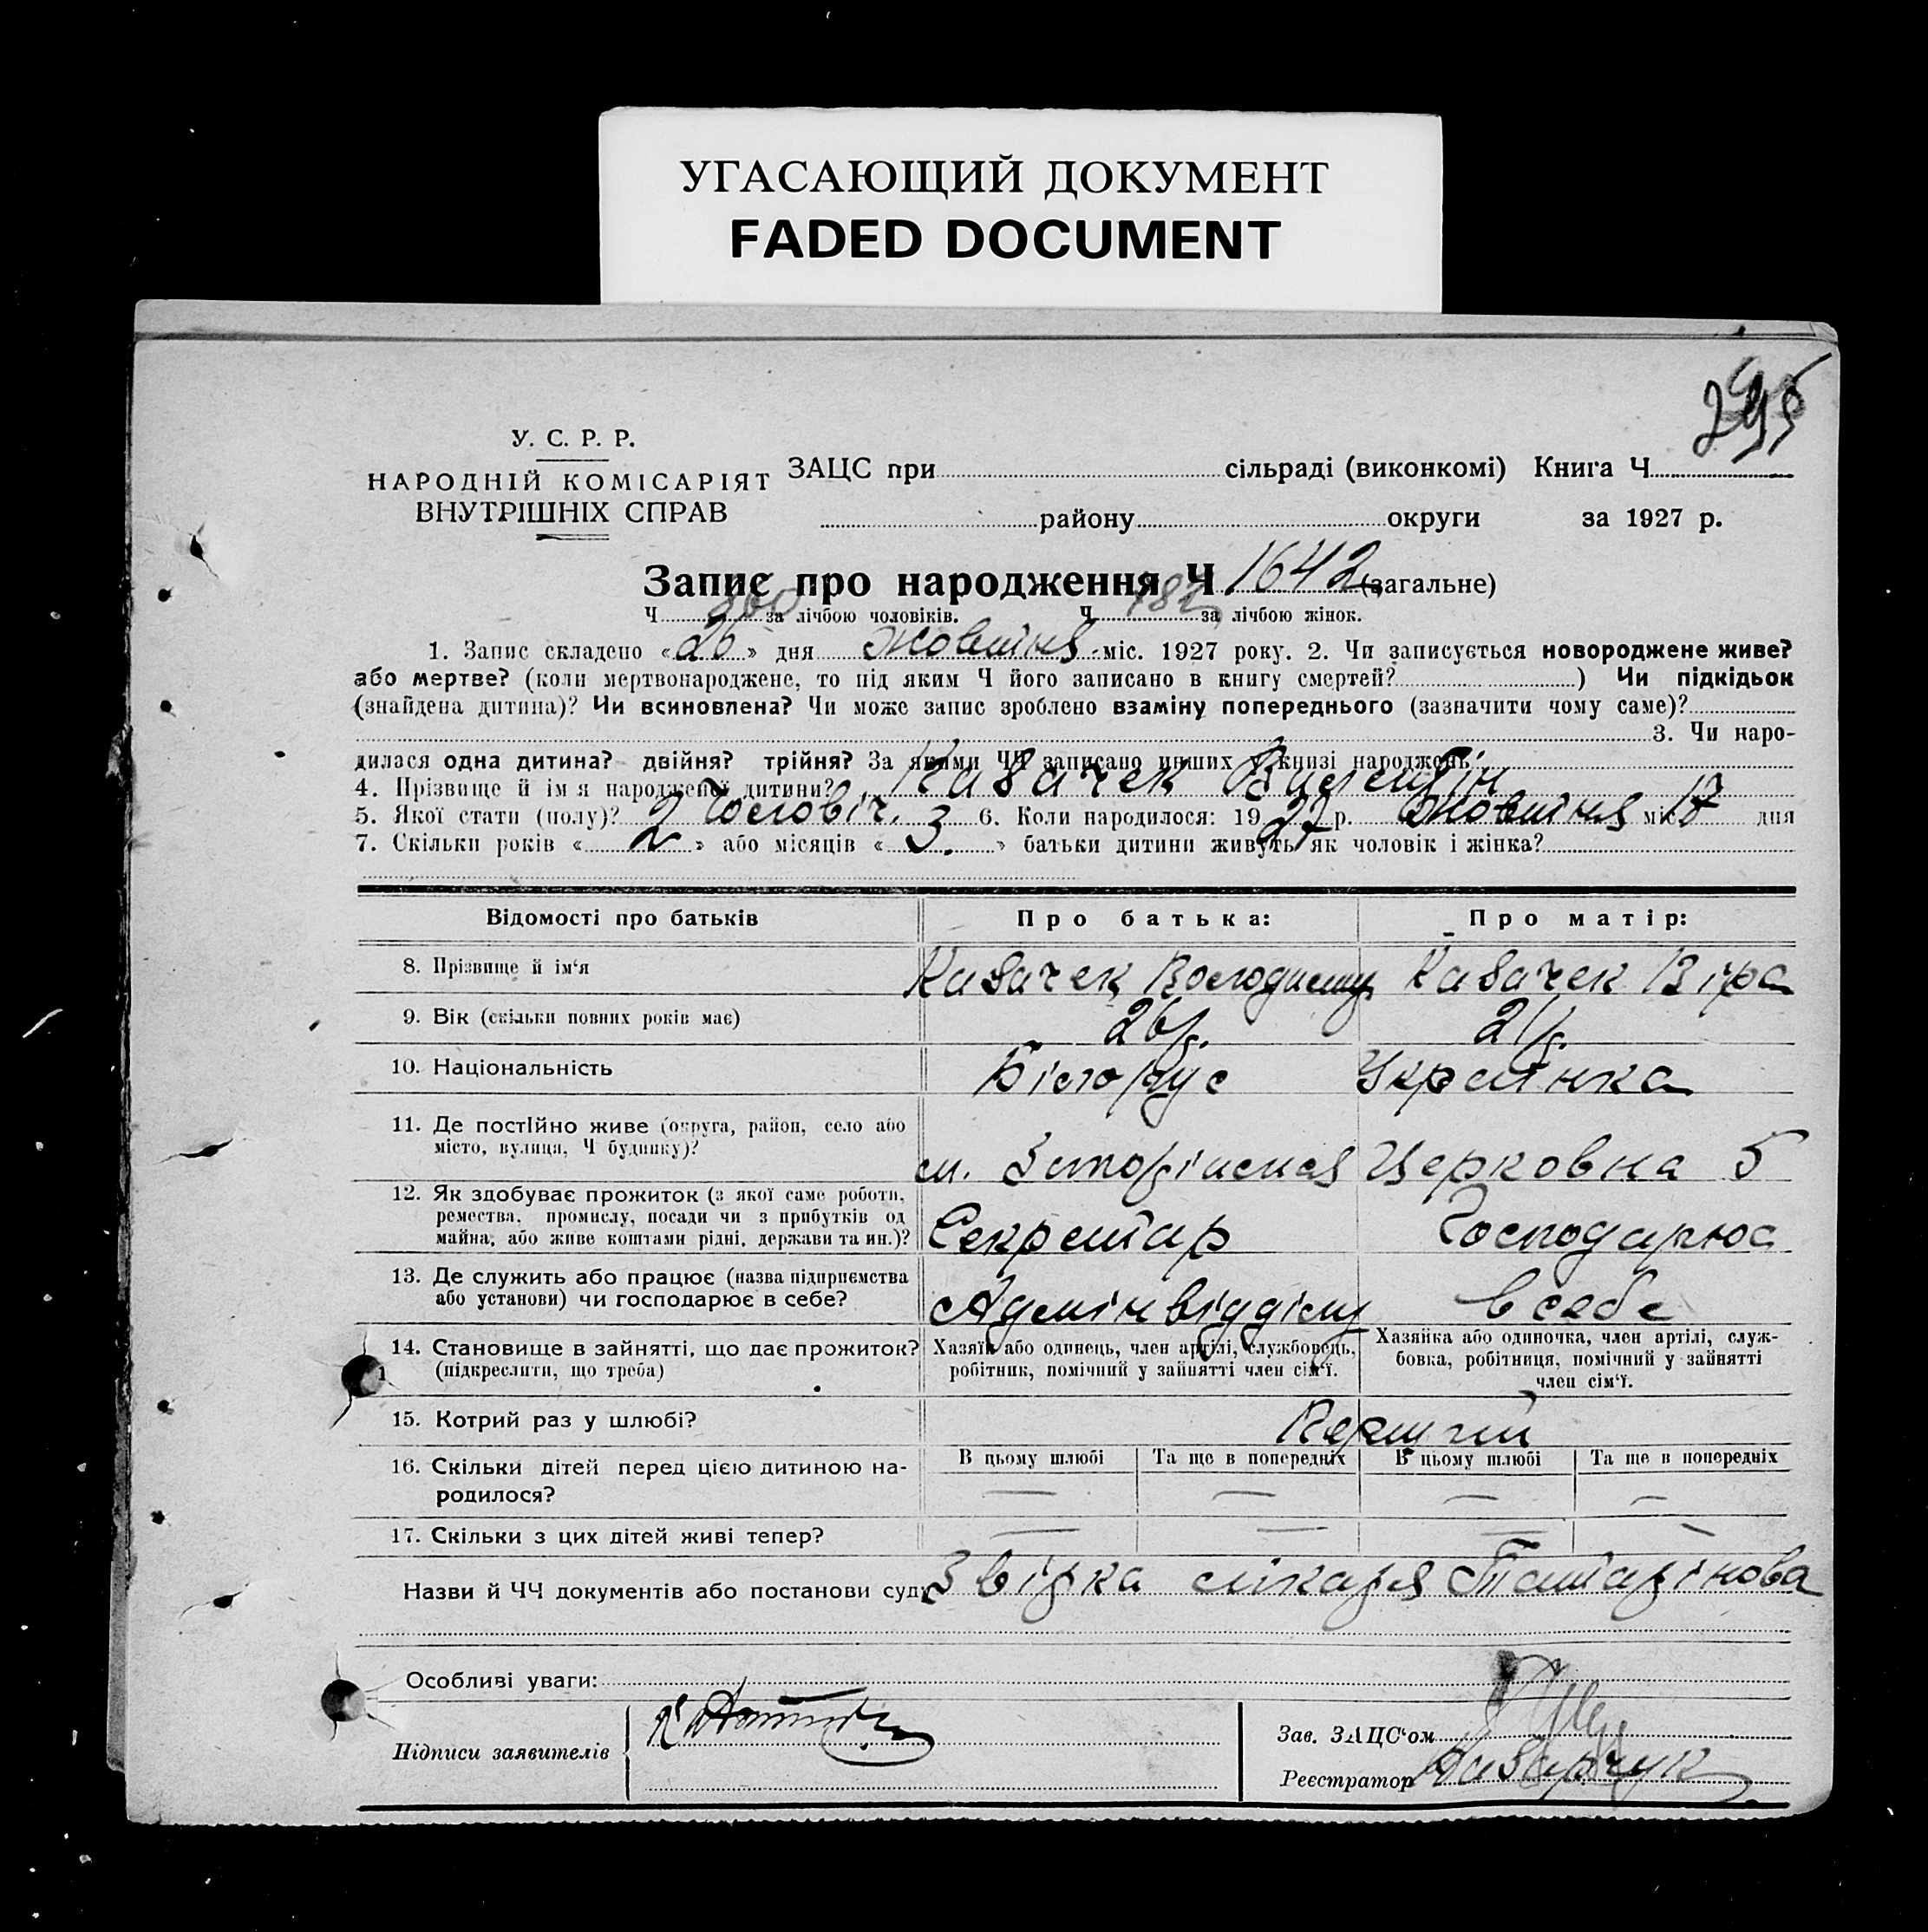 УГАСАЮЩИЙ ДОКУМЕНТ
FADED DOCUMENT
295
У. С. Р. Р.
НАРОДНІЙ КОМІСАРІЯТ
ВНУТРІШНІХ СПРАВ
ЗАЦС при сільраді (виконкомі) Книга Ч.
району округи за 1927 р.
Запис про народження Ч 1642 (загальне)
Ч 860 за лічбою чоловіків. Ч 782 за лічбою жінок.
1. Запис складено «26» дня жовтня міс. 1927 року. 2. Чи записується новороджене живе?
або мертве? (коли мертвонароджене, то під яким Ч його записано в книгу смертей? ) Чи підкідьок
(знайдена дитина)? Чи всиновлена? Чи може запис зроблено взаміну попереднього (зазначити чому саме)?
3. Чи наро-
дилася одна дитина? двійня? трійня? За якими ЧЧ записано инших у книзі народжень
4. Прізвище й ім'я народженої дитини? Казачек Валентін
5. Якої стати (полу)? 2 Чоловіч. 3 6. Коли народилося: 1927 р. Жовтня міс 17 дня
7. Скільки років «2» або місяців «3.» батьки дитини живуть як чоловік і жінка?
Відомості про батьків Про батька: Про матір:
8. Прізвище й ім'я Казачек Володимир Казачек Віра
9. Вік (скільки повних років має) 26 р. 21 р.
10. Національність Білорус Українка
11. Де постійно живе (округа, район, село або
місто, вулиця, Ч будинку)?
м. Церковна 5
12. Як здобуває прожиток (з якої саме роботи,
ремества, промислу, посади чи з прибутків од
майна, або живе коштами рідні, держави та ин.)?
Секретар Господарює
13. Де служить або працює (назва підприємства
або установи) чи господарює в себе?
Адмінвідділу в себе
14. Становище в зайнятті, що дає прожиток?
(підкреслити, що треба)
Хазяїн або одинець, член артілі, службовець,
робітник, помічний у зайнятті член сім'ї.
Хазяйка або одиночка, член артілі, служ-
бовка, робітниця, помічний у зайнятті
член сім'ї.
15. Котрий раз у шлюбі? Перший
16. Скільки дітей перед цією дитиною на-
родилося?
В цьому шлюбі Та ще в попередніх В цьому шлюбі Та ще в попередніх
— — — —
17. Скільки з цих дітей живі тепер? — — — —
Назви й ЧЧ документів або постанови суду Звірка лікаря Татарінова
Особливі уваги:
Підписи заявителів
Зав. ЗАЦС'ом
Реєстратор